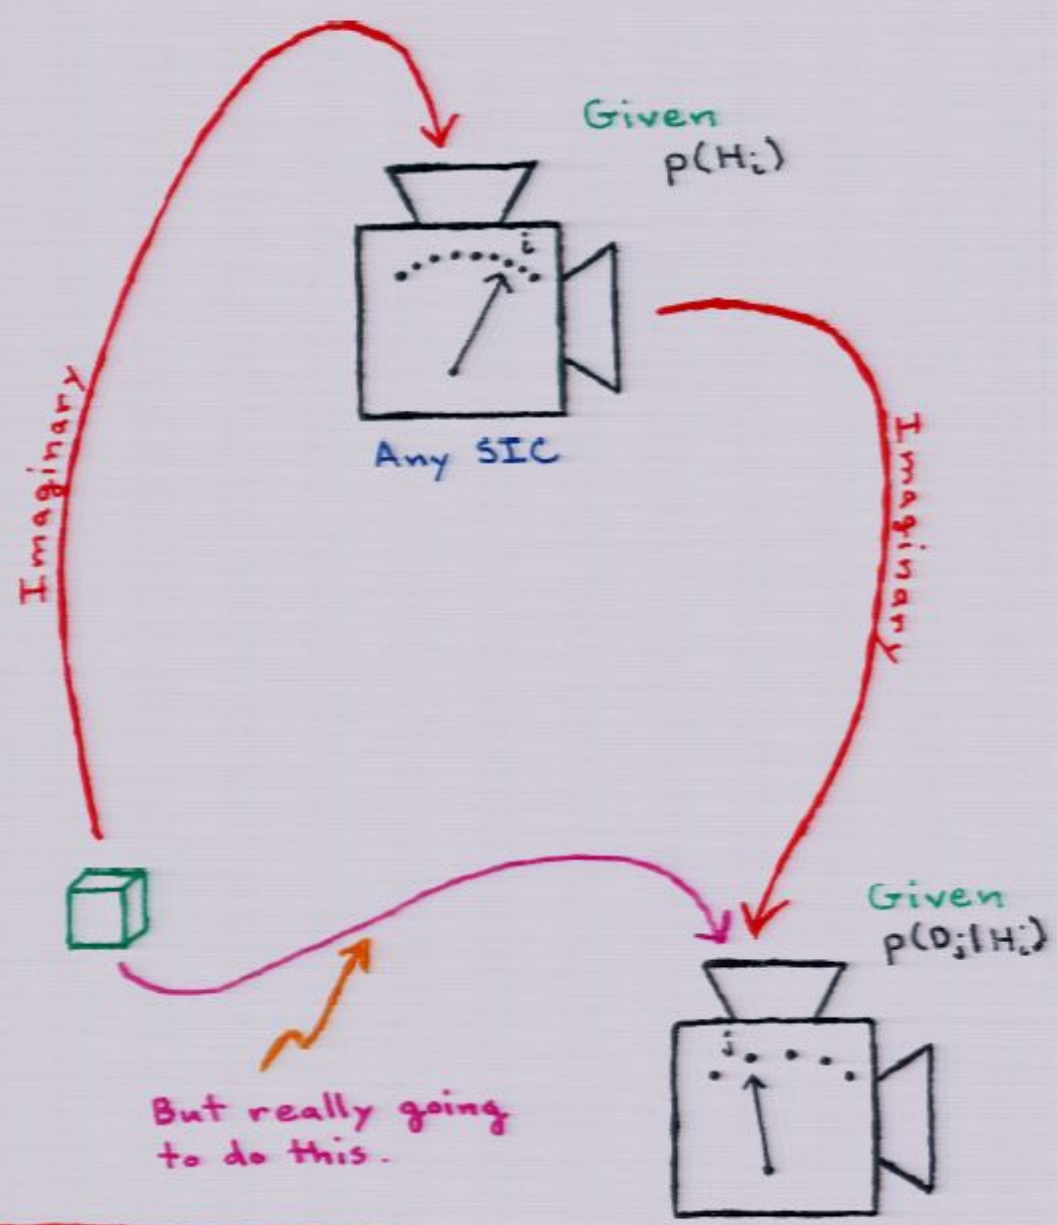 Given
p(Hᵢ)
i
Any SIC
Imaginary
Imaginary
Given
p(Dⱼ|Hᵢ)
j
But really going
to do this.